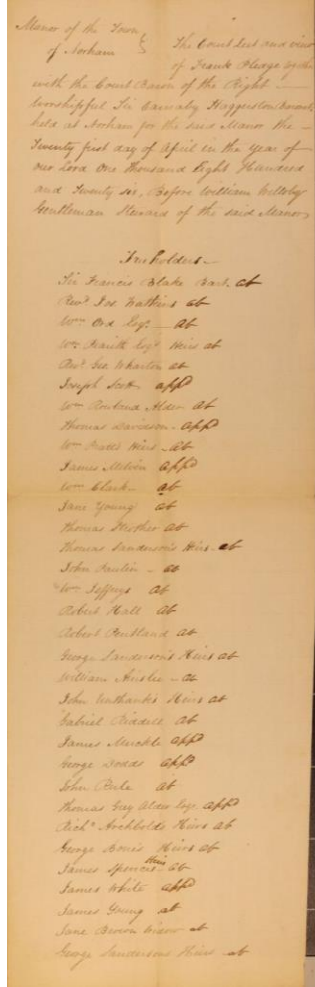 Manor of the Town
of Norham } The Court Leet and view
of Frank Pledge together
with the Court Baron of the Right
Worshipful Sir Carnaby Haggerston Baronet
held at Norham for the said Manor the
Twenty first day of April in the Year of
our Lord One Thousand Eight Hundred
and Twenty six, Before William Willoby
Gentleman Steward of the said Manor
Freeholders
Sir Francis Blake Bart. ab
Revd. Jos. Watkins ab
Wm Ord Esqr. ab
Wm Esqr. Heirs ab
Revd. Geo. Wharton ab
Joseph Scott appd
Wm Rowland Alder ab
Thomas Davidson appd
Wm Heirs ab
James Melvin appd
Wm Clark ab
Jane Young ab
Thomas ab
Thomas Sanderson's Heirs ab
John Paulin ab
Wm Jeffreys ab
Robert Hall ab
Robert ab
George Sanderson's Heirs ab
William Ainslie ab
John Unthank's Heirs ab
Gabriel Riddell ab
James Muckle appd
George Dodds appd
John Rule ab
Thomas Grey Alder Esqr. appd
Richd. Archbold's Heirs ab
George Heirs ab
James Spence's Heirs ab
James White appd
James Young ab
Jane Widow ab
George Sandersons Heirs ab